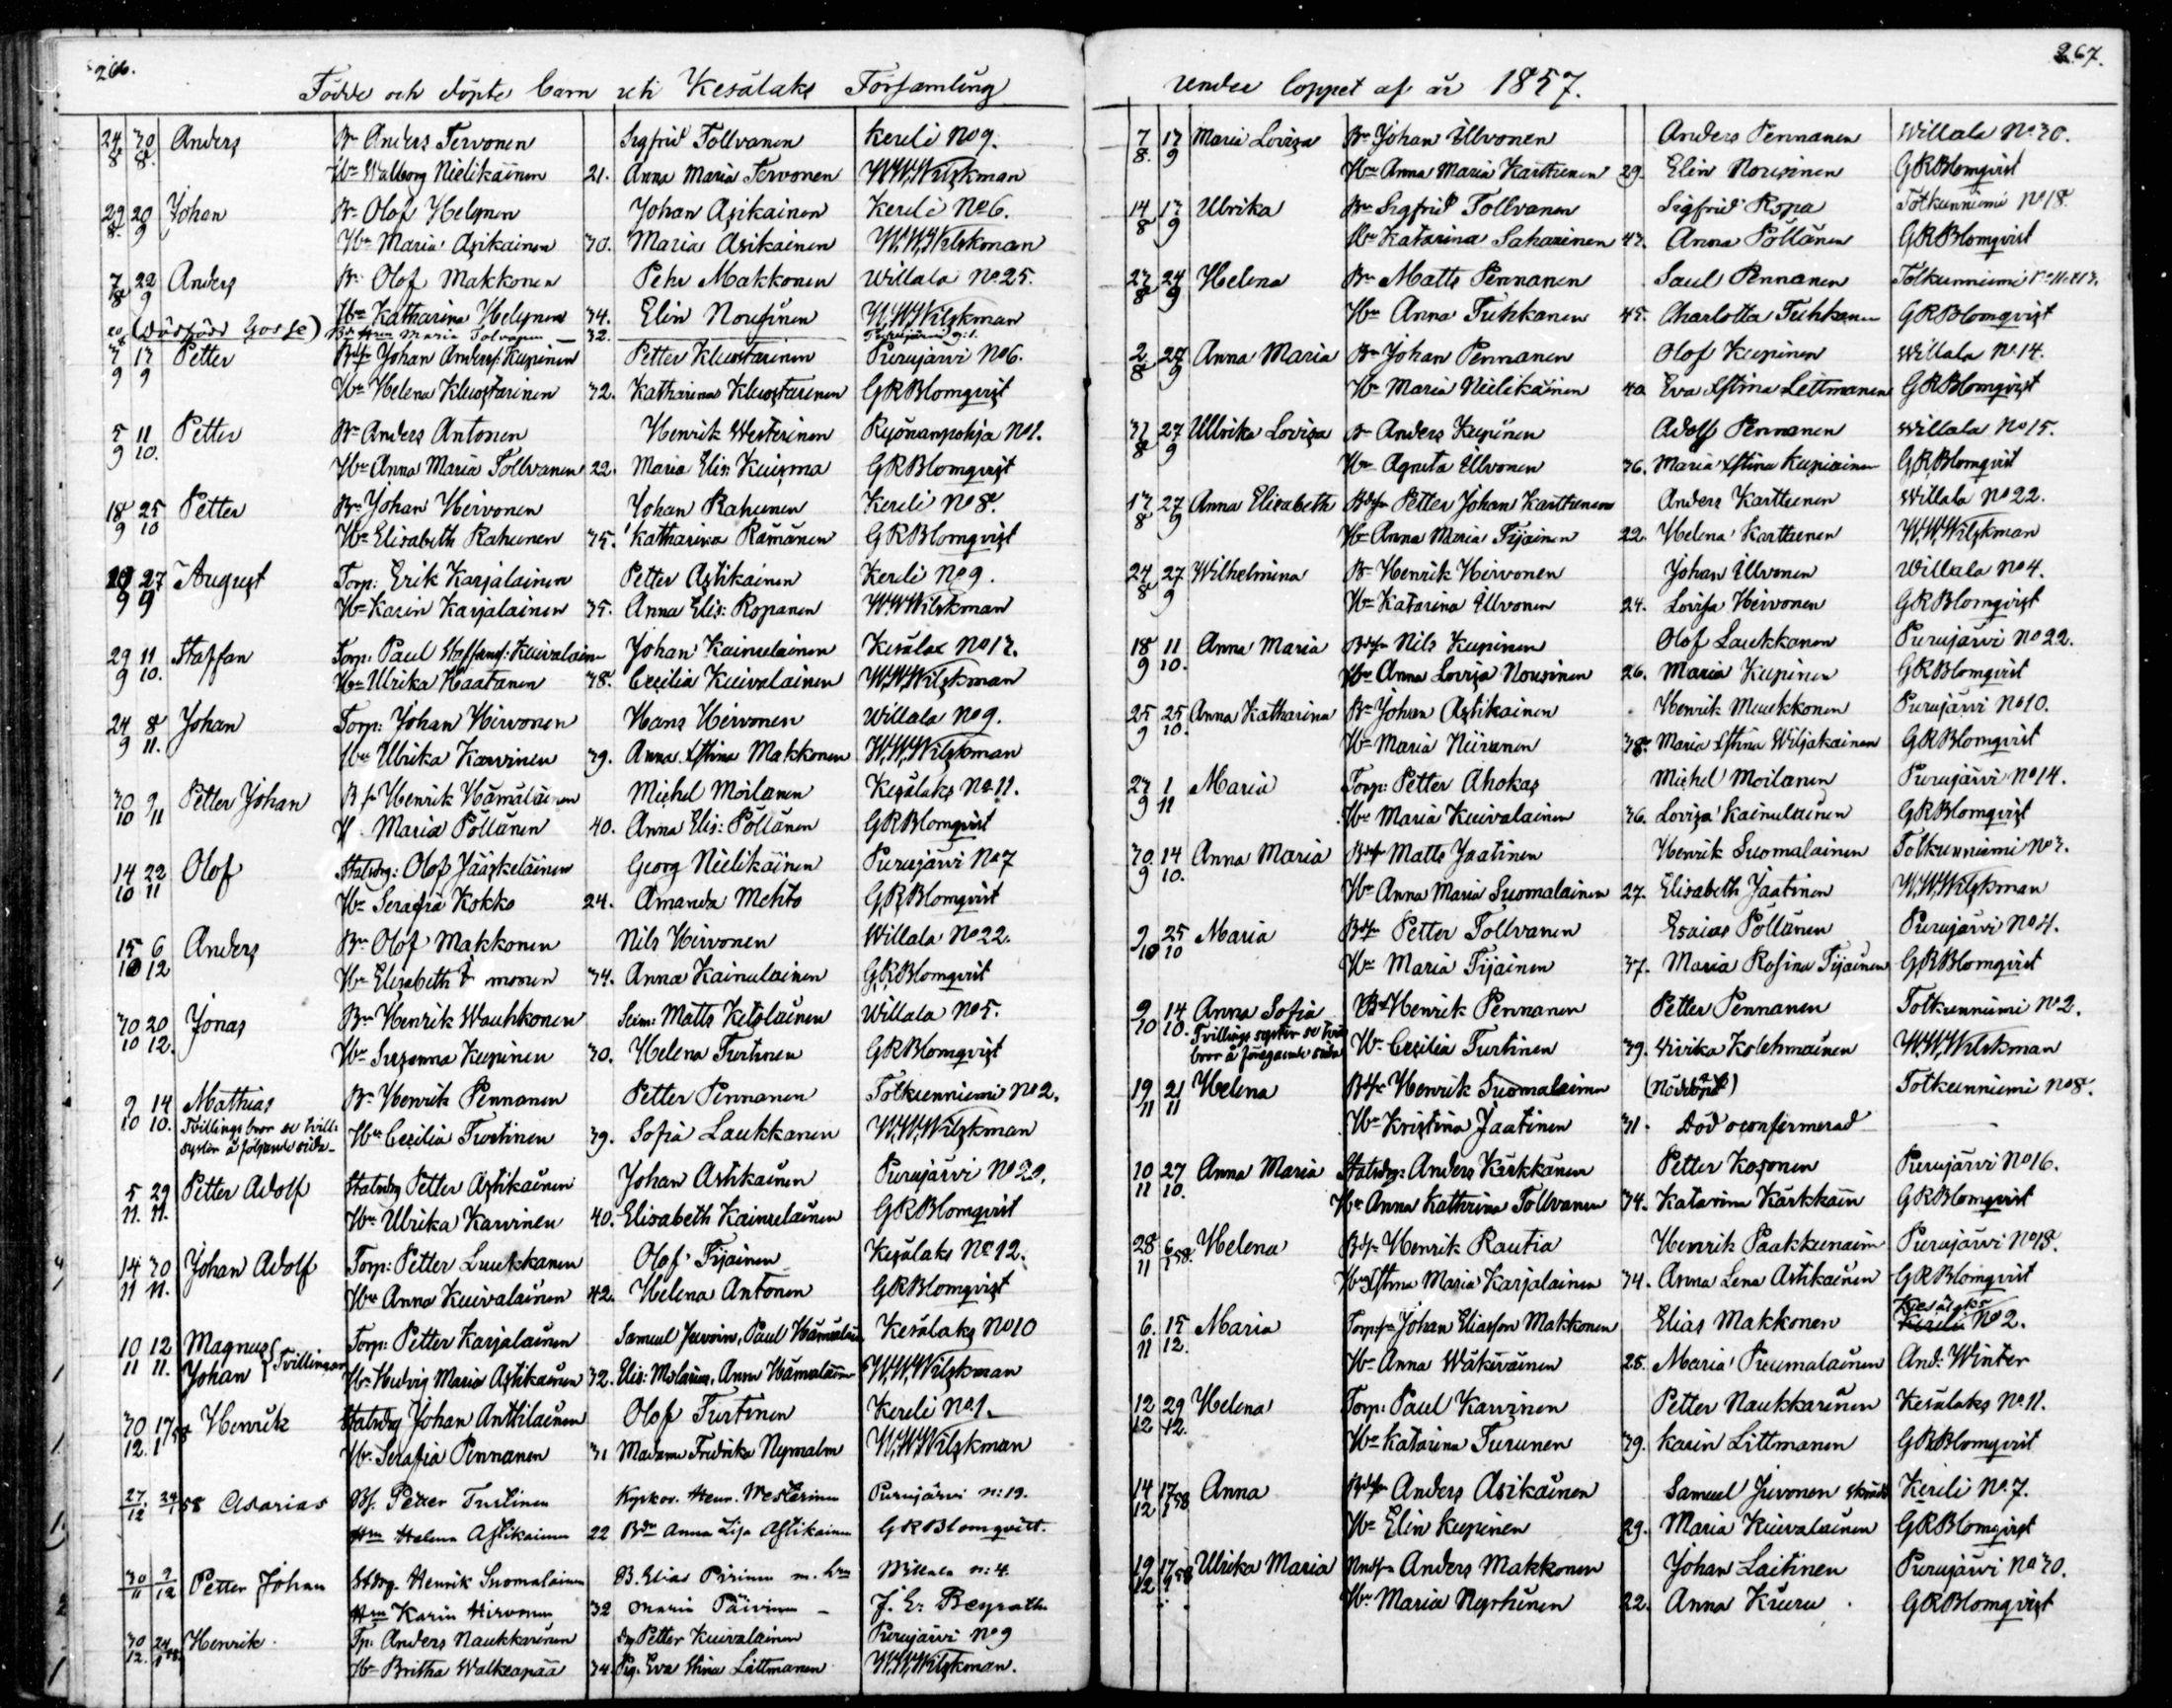 266.
Födde och döpte barn uti Kesälaks Församling
24 30 Anders Bn Anders Tervonen Sigfrid Tollvanen Kereli No 9.
8 8. Hn Walborg Nielikäinen 21. Anna Maria Tervonen W.W.Wilskman
29 20 Johan Bn Olof Helynen Johan Asikainen Kereli No 6.
8. 9 Hn Maria Asikainen 30. Maria Asikainen W.W.Wilskman
7 22 Anders Bn Olof Makkonen Pehr Makkonen Willala No 25.
8 9 Hn Katharina Helynen 34. Elin Nousinen W.W.Wilskman
(Dödfödd Gosse) Maria Tolvanen 32.
7 13 Petter Bdsn Johan Anderss: Kupinen Petter Kluostarinen Purujärvi No 6.
9 9 Hn Helena Kluostarinen 32. Katharina Kluostarinen GRBlomqvist
5 11 Petter Bn Anders Antonen Henrik Westerinen Ryönänpohja No 1.
9 10. Hn Anna Maria Tollvanen 22. Maria Elin Kuisma GRBlomqvist
18 25 Petter Bn Johan Hirvonen Johan Rahunen Kereli No 8.
9 10 Hn Elisabeth Rahunen 35. Katharina Rämänen GRBlomqvist
27 August Torp: Erik Karjalainen Petter Astikainen Kereli No 9.
9 9 Hn Karin Karjalainen 35. Anna Elis: Ropanen W.W.Wilskman
29 11 Staffan Torp: Paul Staffanss: Kuivalainen Johan Kainulainen Kesälax No 13.
9 10. Hn Ulrika Haatanen 38. Cecilia Kuivalainen W.W.Wilskman
24 8 Johan Torp: Johan Hirvonen Hans Hirvonen Willala No 9.
9 11. Hn Ulrika Karvinen 39. Anna Stina Makkonen W.W.Wilskman
30 9 Petter Johan B.sn Henrik Hämäläinen Michel Moilanen Kesälaks No 11.
10 11 H. Maria Pöllänen 40. Anna Elis: Pöllänen GRBlomqvist
14 22 Olof Statsdrg: Olof Jääskeläinen Georg Nielikäinen Purujärvi No 7
10 11 Hn Serafia Kokko 24. Amanda Mehto GRBlomqvist
15 6 Anders Bn Olof Makkonen Nils Hirvonen Willala No 22.
10 12 Hn Elisabeth 34. Anna Kainulainen GRBlomqvist
30 20 Jonas Bn Henrik Wauhkonen Seim: Matts Ketolainen Willala No 5.
10 12. Hn Susanna Kupinen 30. Helena Turtinen GRBlomqvist
9 14 Mathias Bn Henrik Pennanen Petter Pennanen Totkunniemi No 2.
10 10. Tvillings bror se tvill: Hn Cecilia Turtinen 39. Sofia Laukkanen W.W.Wilskman
syster å följande sida-
5 29 Petter Adolf Statsdrg Petter Astikainen Johan Astikainen Purujärvi No 29.
11. 11. Hn Ulrika Karvinen 40. Elisabeth Kainulainen GRBlomqvist
14 30 Johan Adolf Torp: Petter Luukkanen Olof Tijainen Kesälaks No 12.
11 11. Hn Anna Kuivalainen 42. Helena Antonen GRBlomqvist
10 12 Magnus Torp: Petter Karjalainen Samuel Juvoinen, Paul Hämäläinen Kesälaks No 10
11 11. Johan } Tvillingar Hn Hedvig Maria Astikainen 32. Elis: Molarius, Anna Hämäläinen W.W.Wilskman
30 17 Henrik Statsdrg Johan Anttilainen Olof Turtinen Kereli No 1.
12. 1 58 Hn Serafia Pennanen 31 Madame Fredrika Nymalm W.W.Wilskman
27 24 58 Asarias Bs. Petter Turtinen Kyrkov. Henr. Westerinen Purujärvi n: 19.
12 1 Hn Helena Astikainen 22 Bdr Anna Lisa Astikainen GRBlomqvist.
30 9 Petter Johan Stdrg. Henrik Suomalainen B. Elias Pirinen m. hn Willala n: 4.
11 12 Hn Karin Hirvonen 32 Maria Päivinen - J. E. Beyrath
30 24 Henrik Tp. Anders Naukkarinen Drg Petter Kuivalainen Purujärvi No 9
12. 1 58 Hn Britha Walkeapää 34. Pig. Eva Stina Littmanen W.W.Wilskman.
267.
under loppet af år 1857.
7 13 Maria Lovisa Bn Johan Ullvonen Anders Pennanen Willala No 30.
8. 9 Hn Anna Maria Karttunen 29. Elin Nousinen GRBlomqvist
14 13 Ulrika Bn Sigfrid Tollvanen Sigfrid Ropa Totkunniemi No 18.
8 9 Hn Katarina Saharinen 43. Anna Pöllänen GRBlomqvist
23 24 Helena Bn Matts Pennanen Saul Pennanen Totkunniemi
8 9 Hn Anna Tuhkanen 45. Charlotta Tuhkanen GRBlomqvist
2 27 Anna Maria Bn Johan Pennanen Olof Kupinen Willala No 14.
8 9 Hn Maria Nielikäinen 40. Eva Stina Littmanen GRBlomqvist
31 27 Ullrika Lovisa Bn Anders Kupinen Adolf Pennanen Willala No 15.
8 9 Hn Agneta Ullvonen 36. Maria Stina Kupiainen GRBlomqvist
13 27 Anna Elisabeth Bdsn Petter Johan Karttunen Anders Karttunen Willala No 22.
8 9 Hn Anna Maria Tijainen 22. Helena Karttunen W.W.Wilskman
24 27 Wilhelmina Bn Henrik Hirvonen Johan Ullvonen Willala No 4.
8 9 Hn Katarina Ullvonen 24. Lovisa Hirvonen GRBlomqvist
18 11 Anna Maria Bdsn Nils Kupinen Olof Laukkanen Purujärvi No 22.
9 10. Hn Anna Lovisa Nousinen 26. Maria Kupinen GRBlomqvist
25 25 Anna Katharina Bn Johan Astikainen Henrik Muukkonen Purujärvi No 10.
9 10. Hn Maria Niiranen 38. Maria Stina Wiljakainen GRBlomqvist
27 1 Maria Torp: Petter Ahokas Michel Moilanen Purujärvi No 14.
9 11 Hn Maria Kuivalainen 36. Lovisa Kainulainen GRBlomqvist
30 14 Anna Maria Bdsn Matts Jaatinen Henrik Suomalainen Totkunniemi No 3.
9 10. Hn Anna Maria Suomalainen 27. Elisabeth Jaatinen W.W.Wilskman
9 25 Maria Bdsn Petter Tollvanen Esaias Pöllänen Purujärvi No 4.
10 10 Hn Maria Tijainen 37. Maria Rosina Tijainen GRBlomqvist
9 14 Anna Sofia Bn Henrik Pennanen Petter Pennanen Totkunniemi No 2.
10 10. Tvillings syster se tvill Hn Cecilia Turtinen 39. Vivika Kolehmainen W.W.Wilskman
bror å föregående sida
19 21 Helena Bdsn Henrik Suomalainen (Nöddöpt) Totkunniemi No 8.
11 11 Hn Kristina Jaatinen 31. Död oconfirmerad
10 27 Anna Maria Statsdrg: Anders Kärkkänen Petter Kosonen Purujärvi No 16.
11 10. Hn Anna Kathrina Tollvanen 34. Katarina Kärkkäin GRBlomqvist
28 6 58. Helena Bdsn Henrik Rautia Henrik Paakkunain Purujärvi No 18.
11 1 Hn Stina Maria Karjalainen 34. Anna Lena Astikainen GRBlomqvist
6. 15 Maria Torp:sn Johan Eliasson Makkonen Elias Makkonen Kesälaks No 2.
11 12. Hn Anna Wäkiväinen 25. Maria Puumalainen And: Winter
12 29 Helena Torp: Paul Karvinen Petter Naukkarinen Kesälaks No 11.
12 12. Hn Katarina Turunen 39. Karin Littmanen GRBlomqvist
14 17 58 Anna Bdsn Anders Asikainen Samuel Juvonen Kereli No 7.
12 1 Hn Elin Kupinen 29. Maria Kuivalainen GRBlomqvist
19 17 58 Ulrika Maria Anders Makkonen Johan Laitinen Purujärvi No 30.
12 1 Hn Maria Nyrhinen 22. Anna Kruru GRBlomqvist